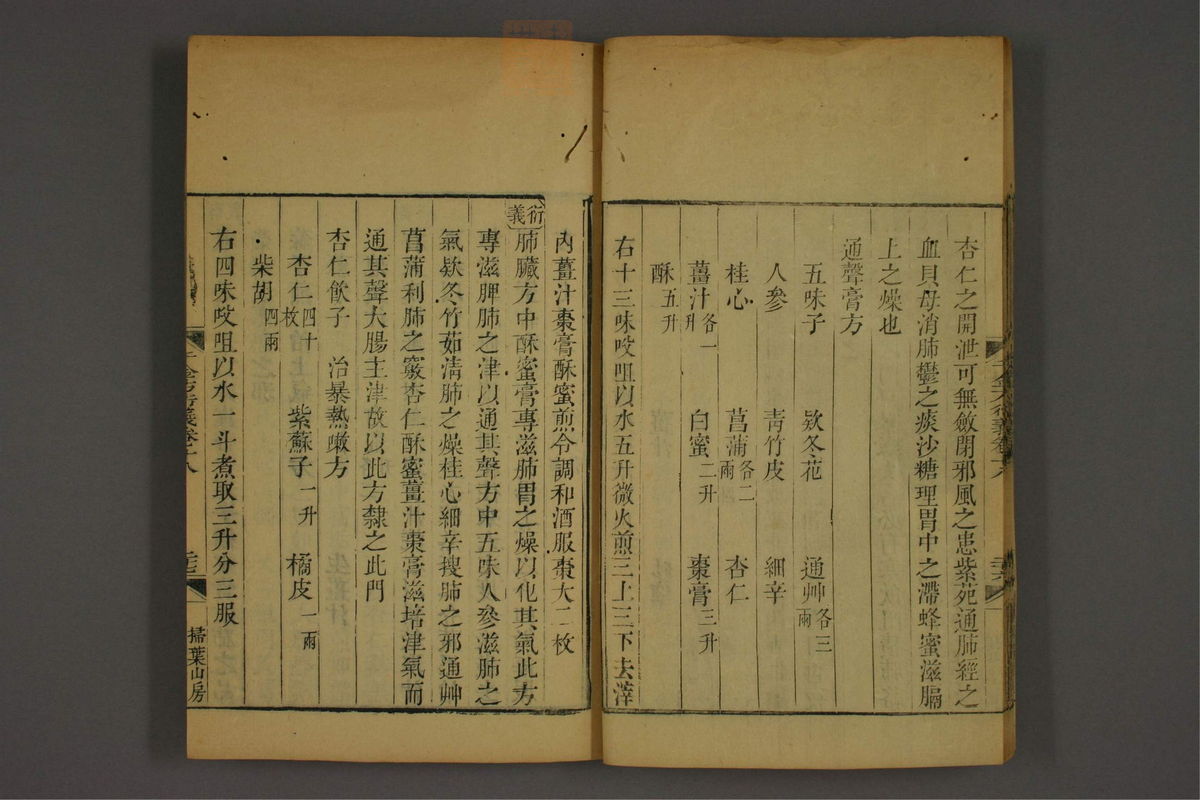 杏仁之開泄可無斂閉邪風之患紫苑通肺經之
血貝母消肺鬱之痰沙糖理胃中之滯蜂蜜滋膈
上之燥也
通聲膏方
五味子 欵冬花 通艸各三兩
人參 青竹皮 細辛
桂心 菖蒲各二兩 杏仁
薑汁各一升 白蜜二升 棗膏三升
酥五升
右十三味㕮咀以水五升微火煎三上三下去滓
內薑汁棗膏酥蜜煎令調和酒服棗大二枚
衍義肺臟方中酥蜜膏專滋肺胃之燥以化其氣此方
專滋脾肺之津以通其聲方中五味人參滋肺之
氣欵冬竹茹清肺之燥桂心細辛搜肺之邪通艸
菖蒲利肺之竅杏仁酥蜜薑汁棗膏滋培津氣而
通其聲大腸主津故以此方隸之此門
杏仁飲子 治暴熱嗽方
杏仁四十枚 紫蘇子一升 橘皮一兩
柴胡四兩
右四味㕮咀以水一斗煮取三升分三服
掃葉山房